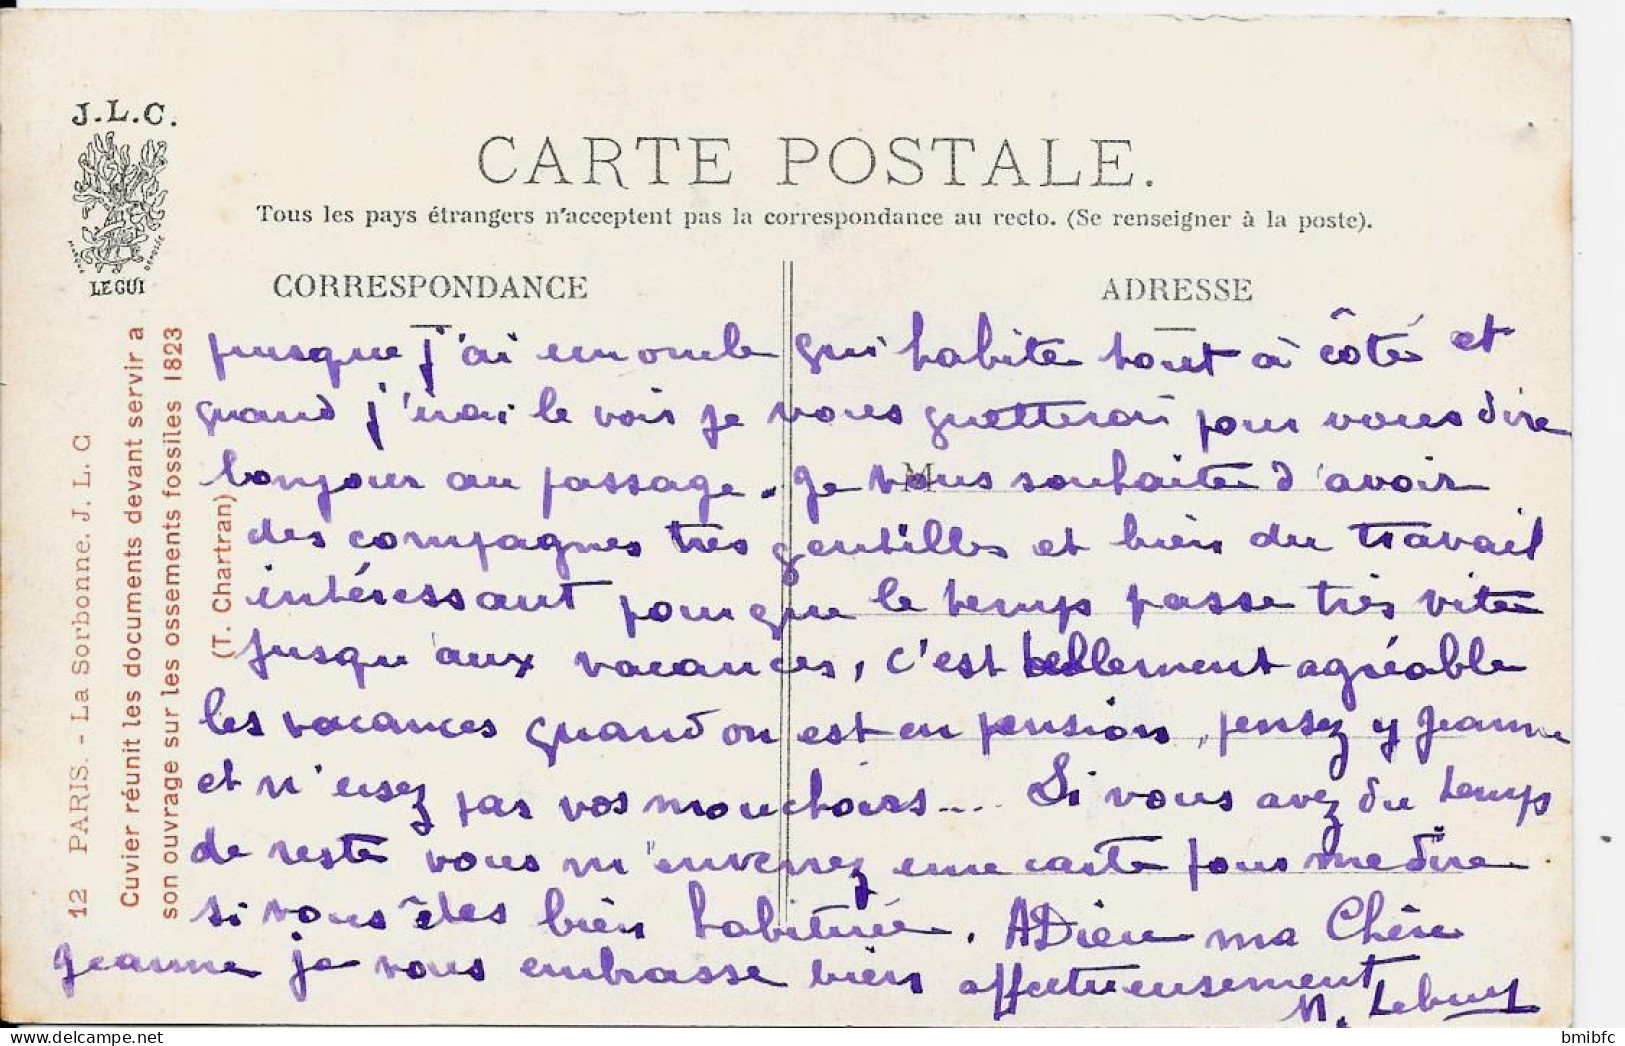 J.L.C.
MARQUE DÉPOSÉE
LE GUI
CARTE POSTALE.
Tous les pays étrangers n'acceptent pas la correspondance au recto. (Se renseigner à la poste).
CORRESPONDANCE
ADRESSE
M
puisque j'ai un oncle qui habite tout à côté et
quand j'irai le voir je vous guetterai pour vous dire
bonjour au passage. Je vous souhaite d'avoir
des compagnes très gentilles et bien du travail
intéressant pour que le temps passe très vite
jusqu'aux vacances, c'est tellement agréable
les vacances quand on est en pension, pensez y Jeanne
et n'usez pas vos mouchoirs.... Si vous avez du temps
de reste vous m'enverrez une carte pour me dire
si vous êtes bien habituée. Adieu ma Chère
Jeanne je vous embrasse bien affectueusement
12 PARIS. - La Sorbonne. J. L. C
Cuvier réunit les documents devant servir a
son ouvrage sur les ossements fossiles 1823
(T. Chartran)
bmibfc